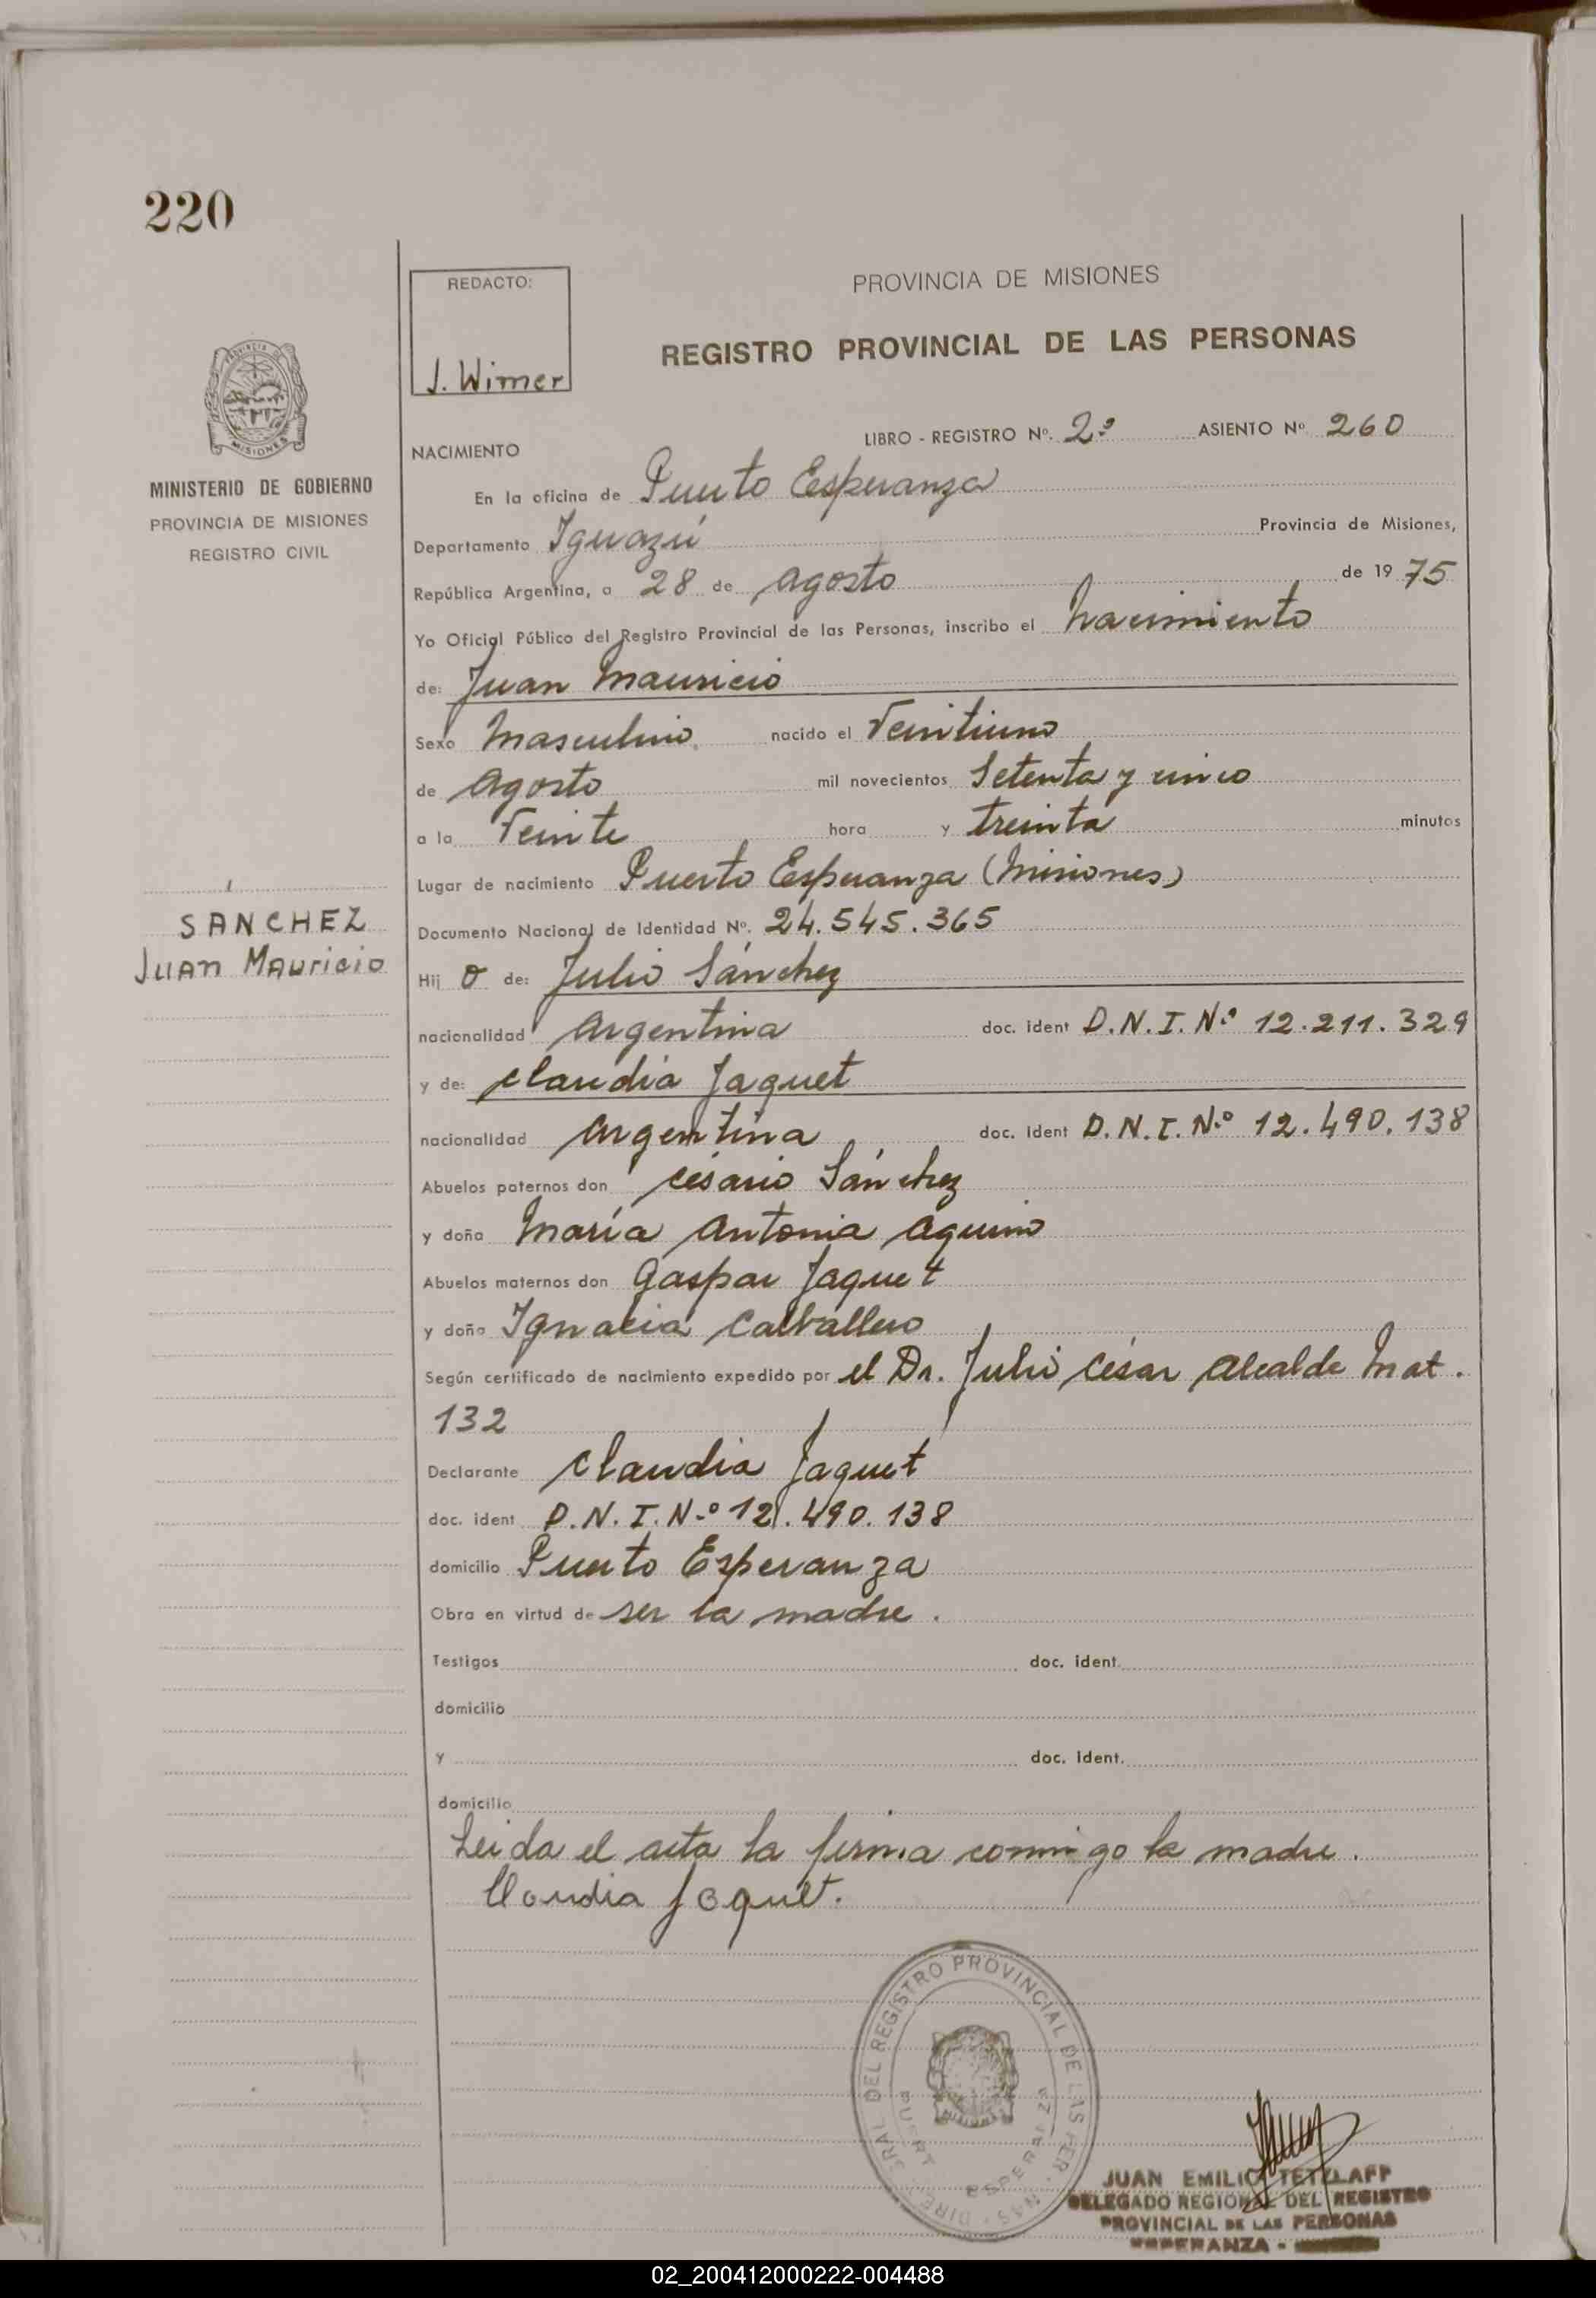 220
REDACTO:
J. Wimer
PROVINCIA DE MISIONES
REGISTRO PROVINCIAL DE LAS PERSONAS
PROVINCIA DE
MISIONES
MINISTERIO DE GOBIERNO
PROVINCIA DE MISIONES
REGISTRO CIVIL
SANCHEZ
Juan Mauricio
LIBRO - REGISTRO Nº. 2º ASIENTO Nº 260
NACIMIENTO
En la oficina de Puerto Esperanza
Departamento Iguazú Provincia de Misiones,
República Argentina, a 28 de agosto de 19 75
Yo Oficial Público del Registro Provincial de las Personas, inscribo el nacimiento
de: Juan Mauricio
Sexo Masculino. nacido el Veintiuno
de agosto mil novecientos Setenta y cinco
a la Veinte hora y treinta minutos
Lugar de nacimiento Puerto Esperanza (Misiones)
Documento Nacional de Identidad Nº. 24.545.365
Hij o de: Julio Sánchez
nacionalidad Argentina doc. ident D.N.I. Nº 12.211.329
y de: Claudia Jaquet
nacionalidad Argentina doc. ident D.N.I. Nº 12.490.138
Abuelos paternos don Césario Sánchez
y doña María Antonia Aquino
Abuelos maternos don Gaspar Jaquet
y doña Ignacia
Según certificado de nacimiento expedido por el Dr. Julio César Alcalde Mat.
132
Declarante Claudia Jaquet
doc. ident D.N.I. Nº 12.490.138
domicilio Puerto Esperanza
Obra en virtud de ser la madre.
Testigos doc. ident.
domicilio
y doc. ident.
domicilio
Leida el acta la firma conmigo la madre.
Claudia Jaquet.
DEL REGISTRO PROVINCIAL DE LAS PER
JUAN EMILIO TETZLAFF
DELEGADO REGIONAL DEL REGISTRO
PROVINCIAL DE LAS PERSONAS
ESPERANZA -
02_200412000222-004488